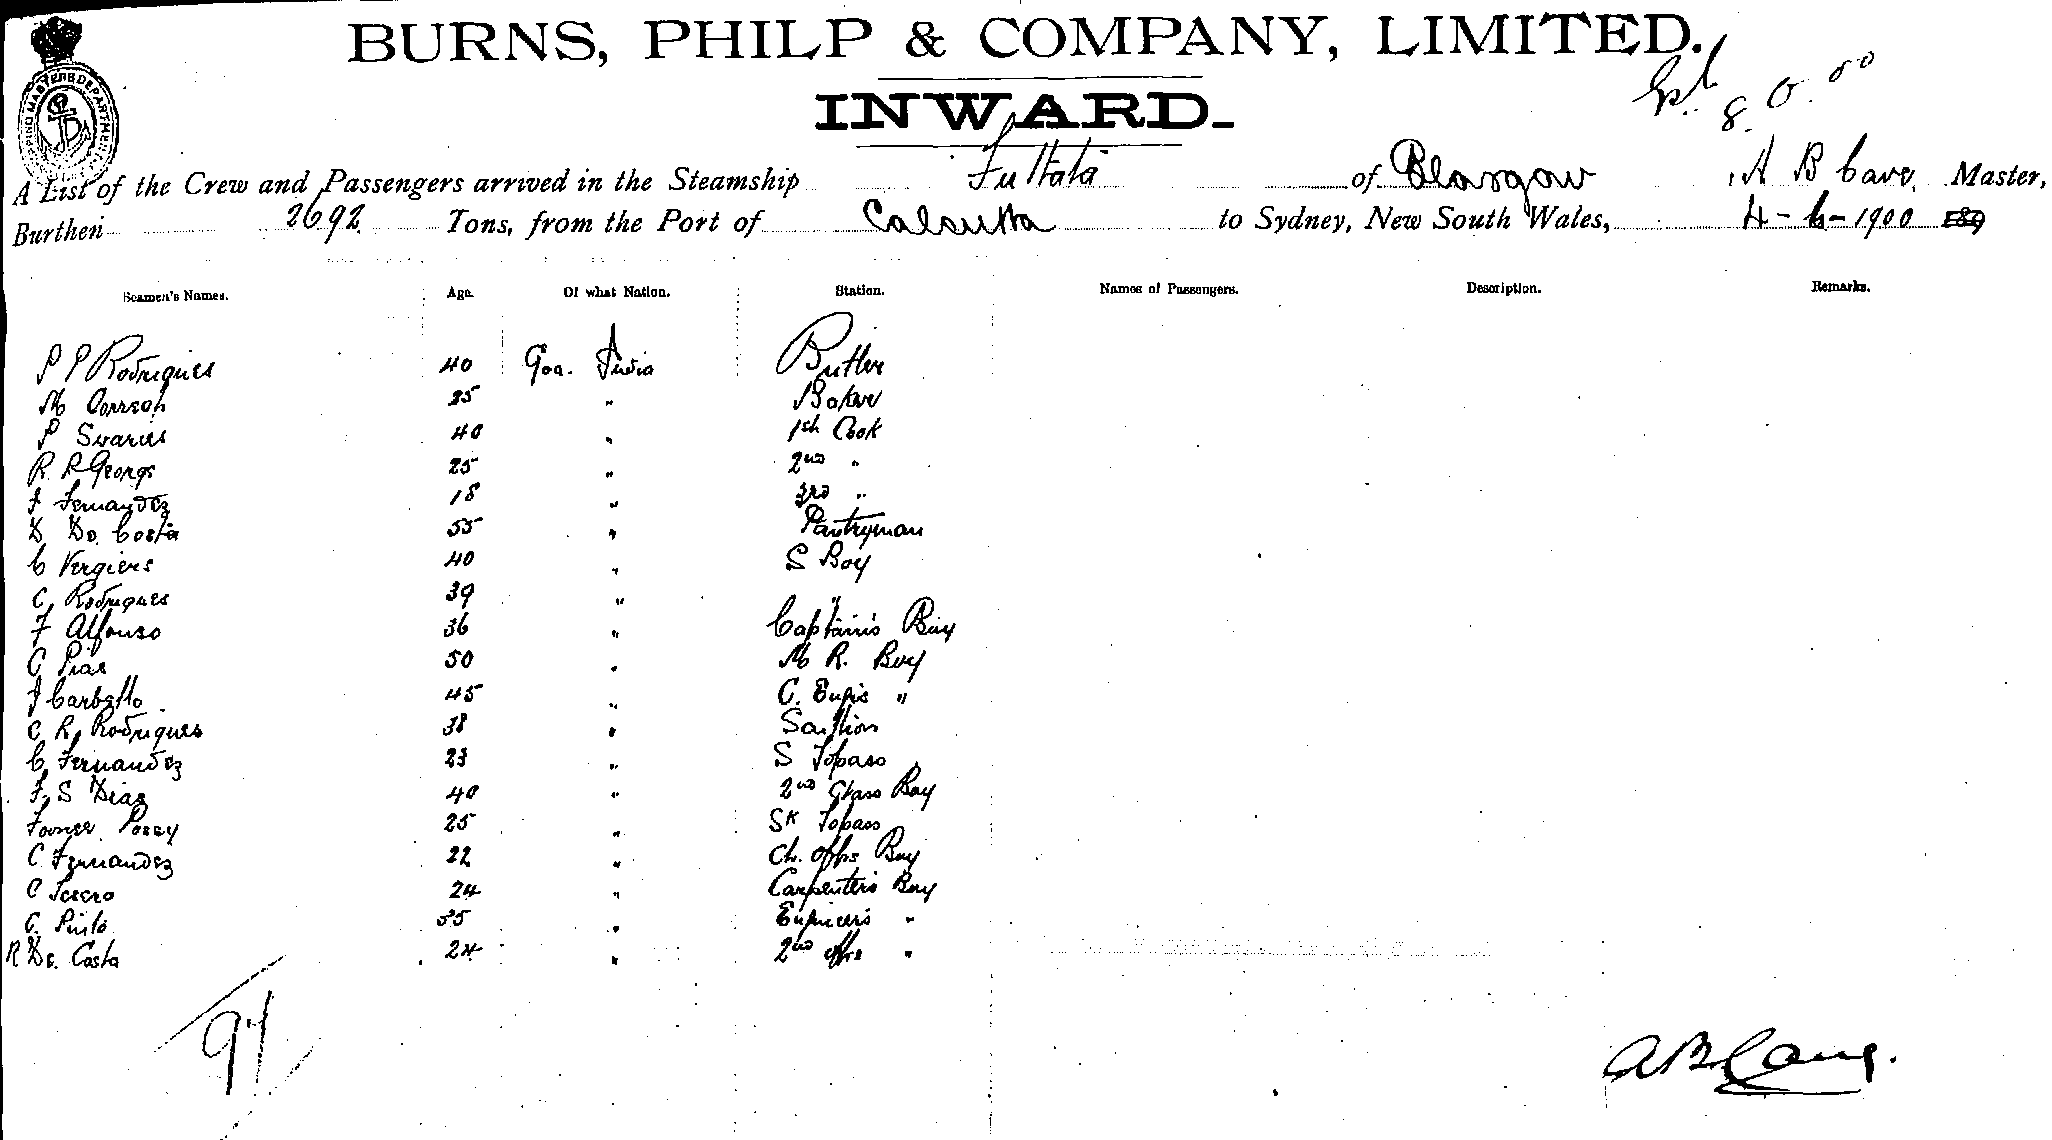 BURNS, PHILP & COMPANY, LIMITED.
INWARD.
A List of the Crew and Passengers arrived in the Steamship Fultala of Glasgow, A B Cave, Master,
Burthen 2692 Tons, from the Port of Calcutta to Sydney, New South Wales, 4-6-1900 189
Seamen's Names. Age. Of what Nation. Station. Names of Passengers. Description. Remarks.
P P Rodrigues 40 Goa. India Butler
M 25 " Baker
P Swaries 40 " 1st Cook
R. R George 25 " 2nd "
Fernandez 18 " 3rd "
D De Costa 55 " Pantryman
C Vergiers 40 " S Boy
C Rodrigues 39 " "
F Alfonso 36 " Captain's Boy
C Dias 50 " M R. Boy
J Carballo 45 " C. Engrs "
C R Rodrigues 38 "
C Fernandez 23 " S Topass
F S Dias 40 " 2nd Glass Boy
25 " Sk Topass
C Fernandez 22 " Ch. offrs Boy
C 24 " Carpenter's Boy
C. Pinto 35 " Engineers "
R De. Costa 24 " 2nd offrs "
97
A B Cave.